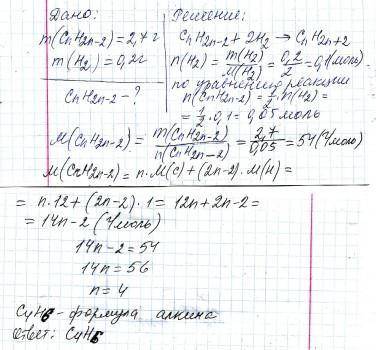 Дано:
m(CnH2n-2)=2,7г
m(H2)=0,2г
CnH2n-2-?
Решение:
CnH2n-2+2H2→CnH2n+2
n(H2)=m(H2)/M(H2)=0,2/2=0,1(моль)
по уравнению реакции
n(CnH2n-2)=1/2·n(H2)=
=1/2·0,1=0,05моль
M(CnH2n-2)=m(CnH2n-2)/n(CnH2n-2)=2,7/0,05=54(г/моль)
M(CnH2n-2)=n·M(C)+(2n-2)·M(H)=
=n·12+(2n-2)·1=12n+2n-2=
=14n-2(г/моль)
14n-2=54
14n=56
n=4
C4H6-формула алкина
Ответ: C4H6